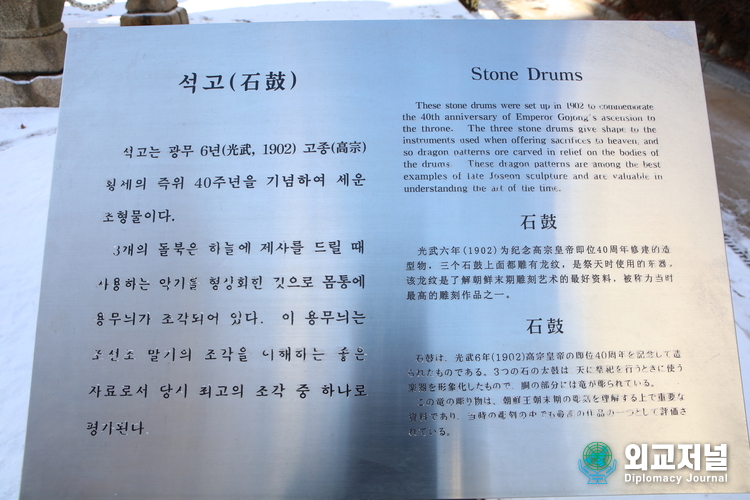 석고(石鼓)
석고는 광무 6년(光武, 1902) 고종(高宗)
황제의 즉위 40주년을 기념하여 세운
조형물이다.
3개의 돌북은 하늘에 제사를 드릴 때
사용하는 악기를 형상화한 것으로 몸통에
용무늬가 조각되어 있다. 이 용무늬는
조선조 말기의 조각을 이해하는 좋은
자료로서 당시 최고의 조각 중 하나로
평가된다.
Stone Drums
These stone drums were set up in 1902 to commemorate
the 40th anniversary of Emperor Gojong's ascension to
the throne. The three stone drums give shape to the
instruments used when offering sacrifices to heaven, and
so dragon patterns are carved in relief on the bodies of
the drums. These dragon patterns are among the best
examples of late Joseon sculpture and are valuable in
understanding the art of the time.
石鼓
光武六年(1902)为纪念高宗皇帝即位40周年修建的造
型物，三个石鼓上面都雕有龙纹，是祭天时使用的乐器。
该龙纹是了解朝鲜末期雕刻艺术的最好资料，被称为当时
最高的雕刻作品之一。
石鼓
石鼓は、光武6年(1902)高宗皇帝の即位40周年を記念して造
られたものである。3つの石の太鼓は、天に祭祀を行うときに使う
楽器を形象化したもので、胴の部分には竜が彫られている。
この竜の彫り物は、朝鮮王朝末期の彫刻を理解する上で重要な
資料であり、当時の彫刻の中でも最高の作品の一つとして評価さ
れている。
외교저널
Diplomacy Journal